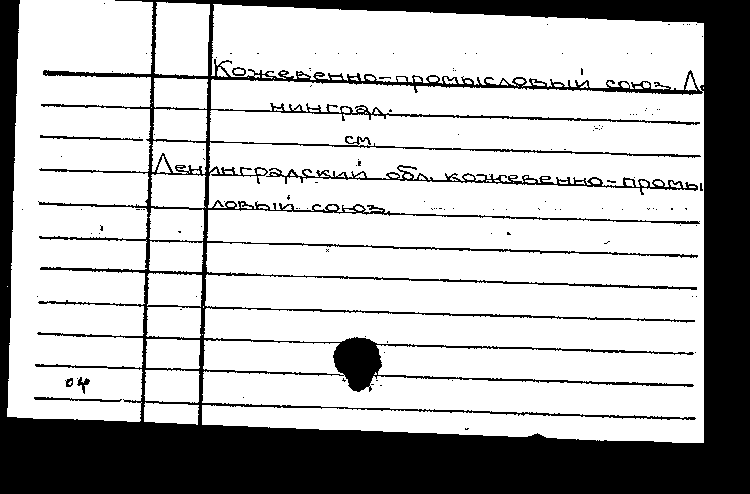 Кожевенно-промысловый союз. Ле
нинград.
см.
Ленинградский обл. кожевенно-промы
ловый союз.
04